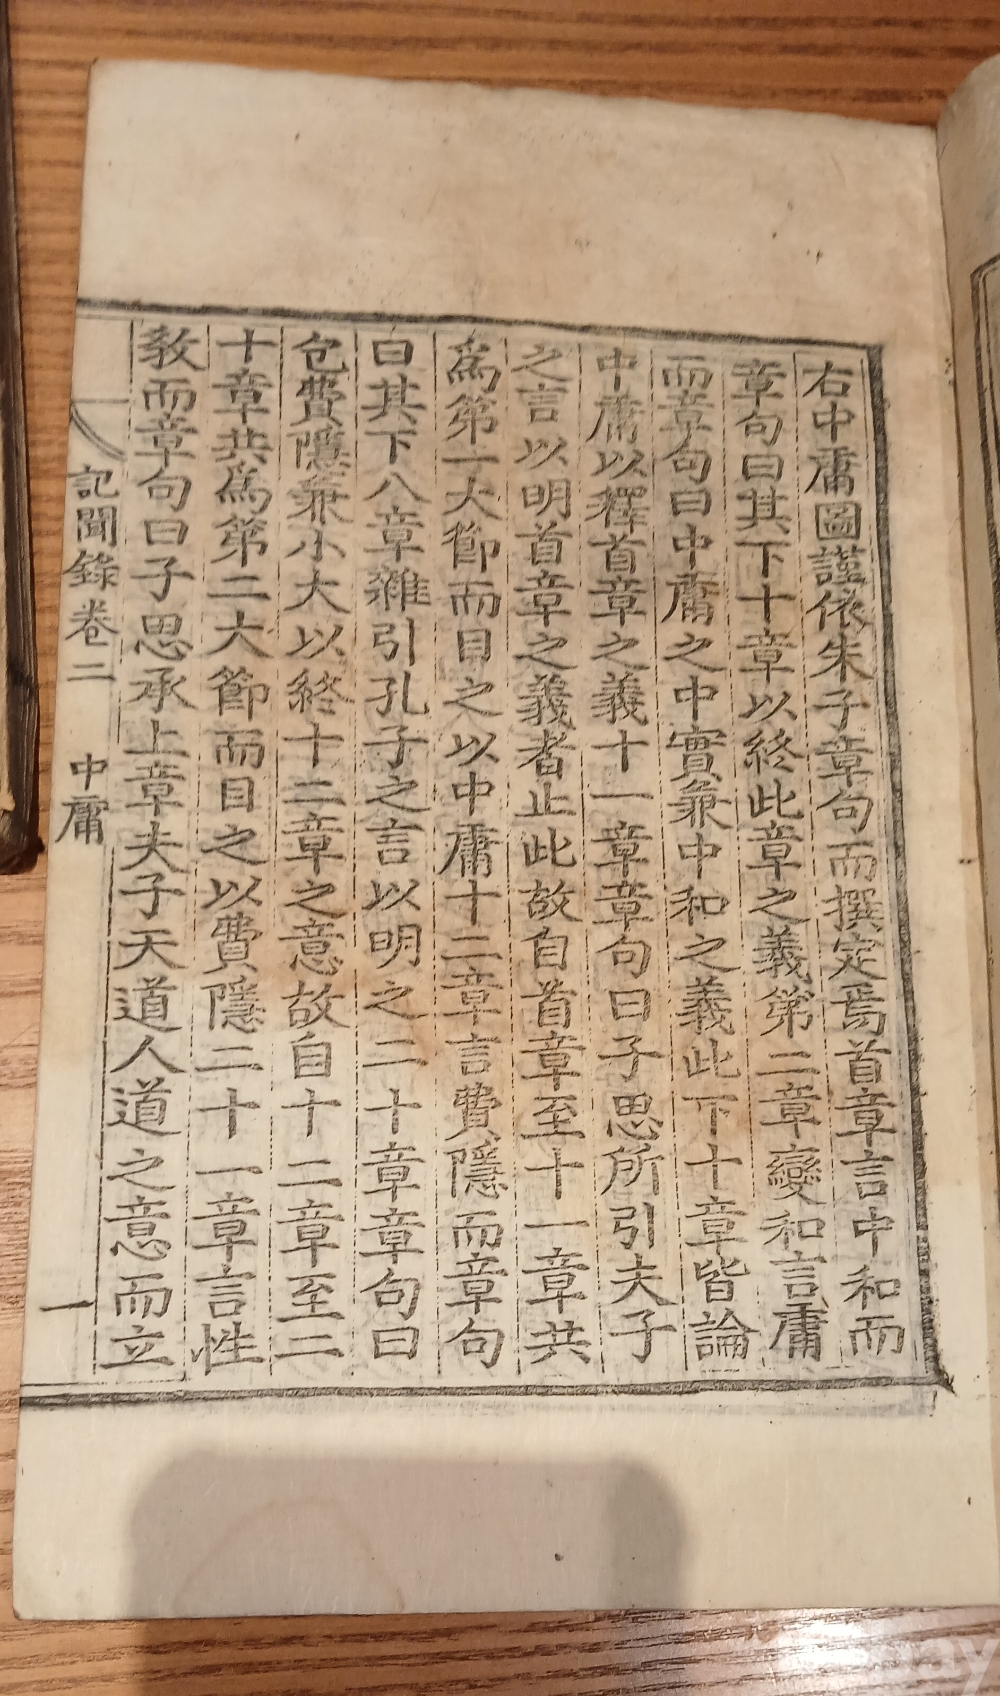 右中庸圖謹依朱子章句而撰定焉首章言中和而
章句曰其下十章以終此章之義第二章變和言庸
而章句曰中庸之中實兼中和之義此下十章皆論
中庸以釋首章之義十一章章句曰子思所引夫子
之言以明首章之義者止此故自首章至十一章共
爲第一大節而目之以中庸十二章言費隱而章句
曰其下八章雜引孔子之言以明之二十章章句曰
包費隱兼小大以終十二章之意故自十二章至二
十章共爲第二大節而目之以費隱二十一章言性
敎而章句曰子思承上章夫子天道人道之意而立
記聞錄卷二 中庸 一